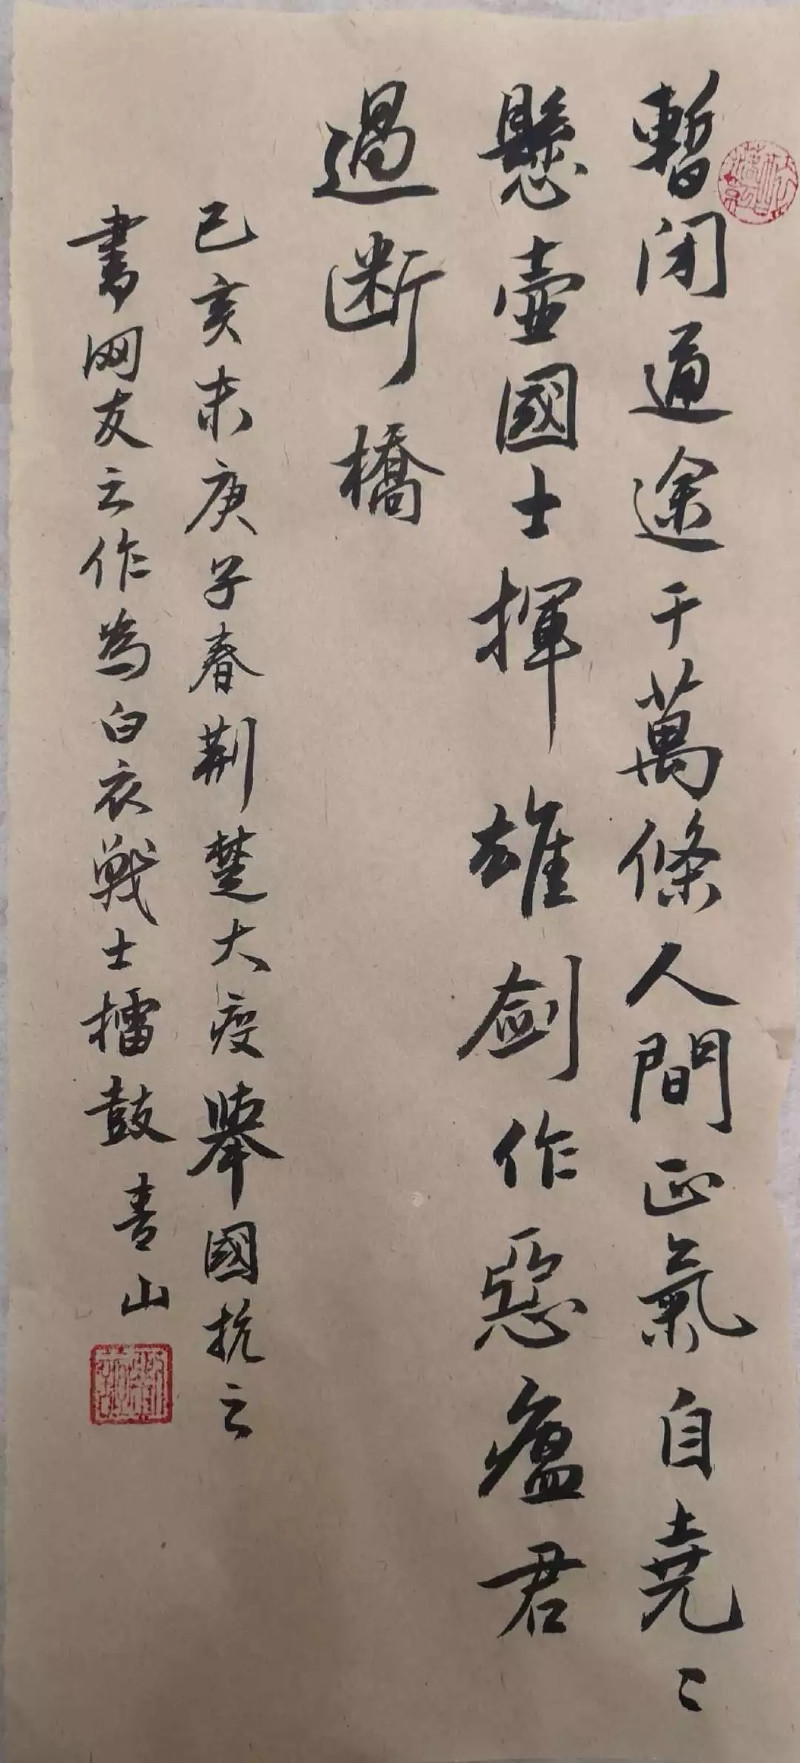 暫闭通途千萬條人間正氣自堯〻
懸壺國士揮雄劍作惡瘟君
過断橋
己亥末庚子春荆楚大疫舉國抗之
書网友之作為白衣戰士擂鼓青山